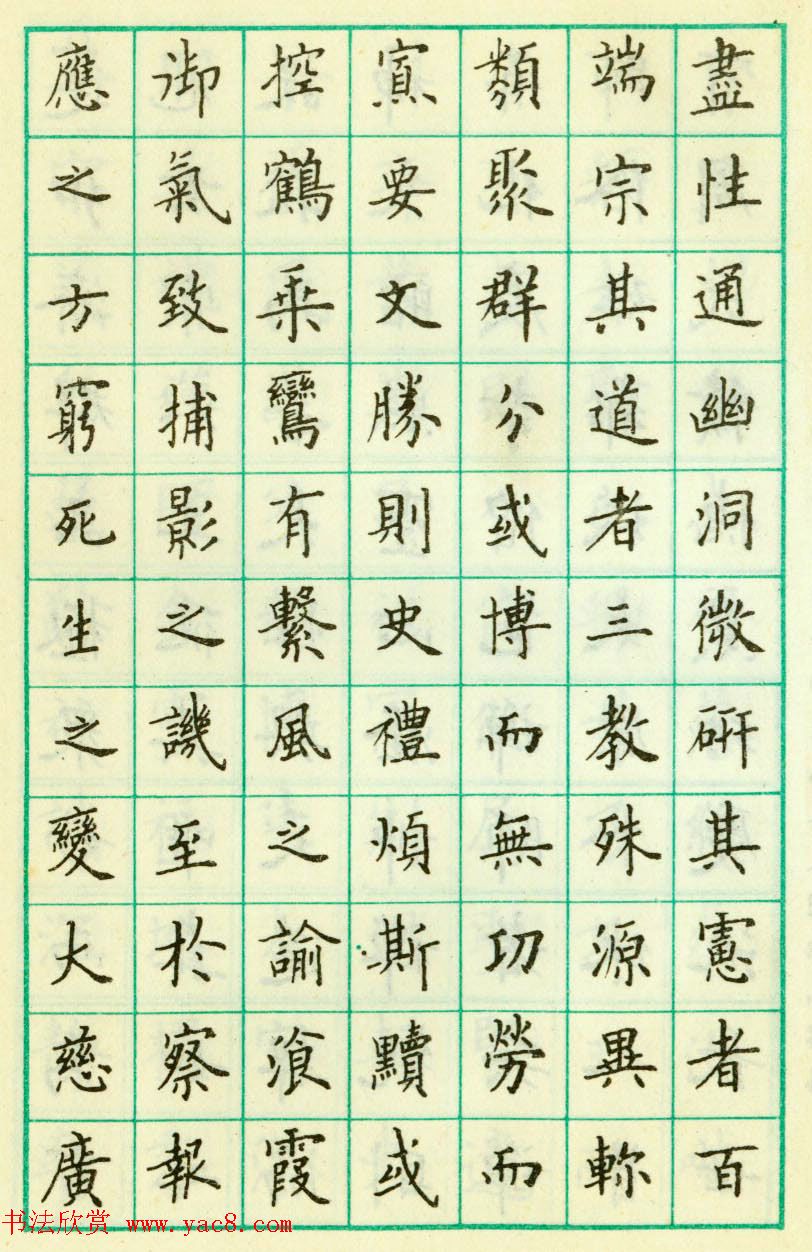 盡性通幽洞微研其慮者百
端宗其道者三教殊源異軫
類聚群分或博而無功勞而
寡要文勝則史禮煩斯黷或
控鶴乘鸞有繫風之諭飡霞
御氣致捕影之譏至於察報
應之方窮死生之變大慈廣
书法欣赏 www.yac8.com